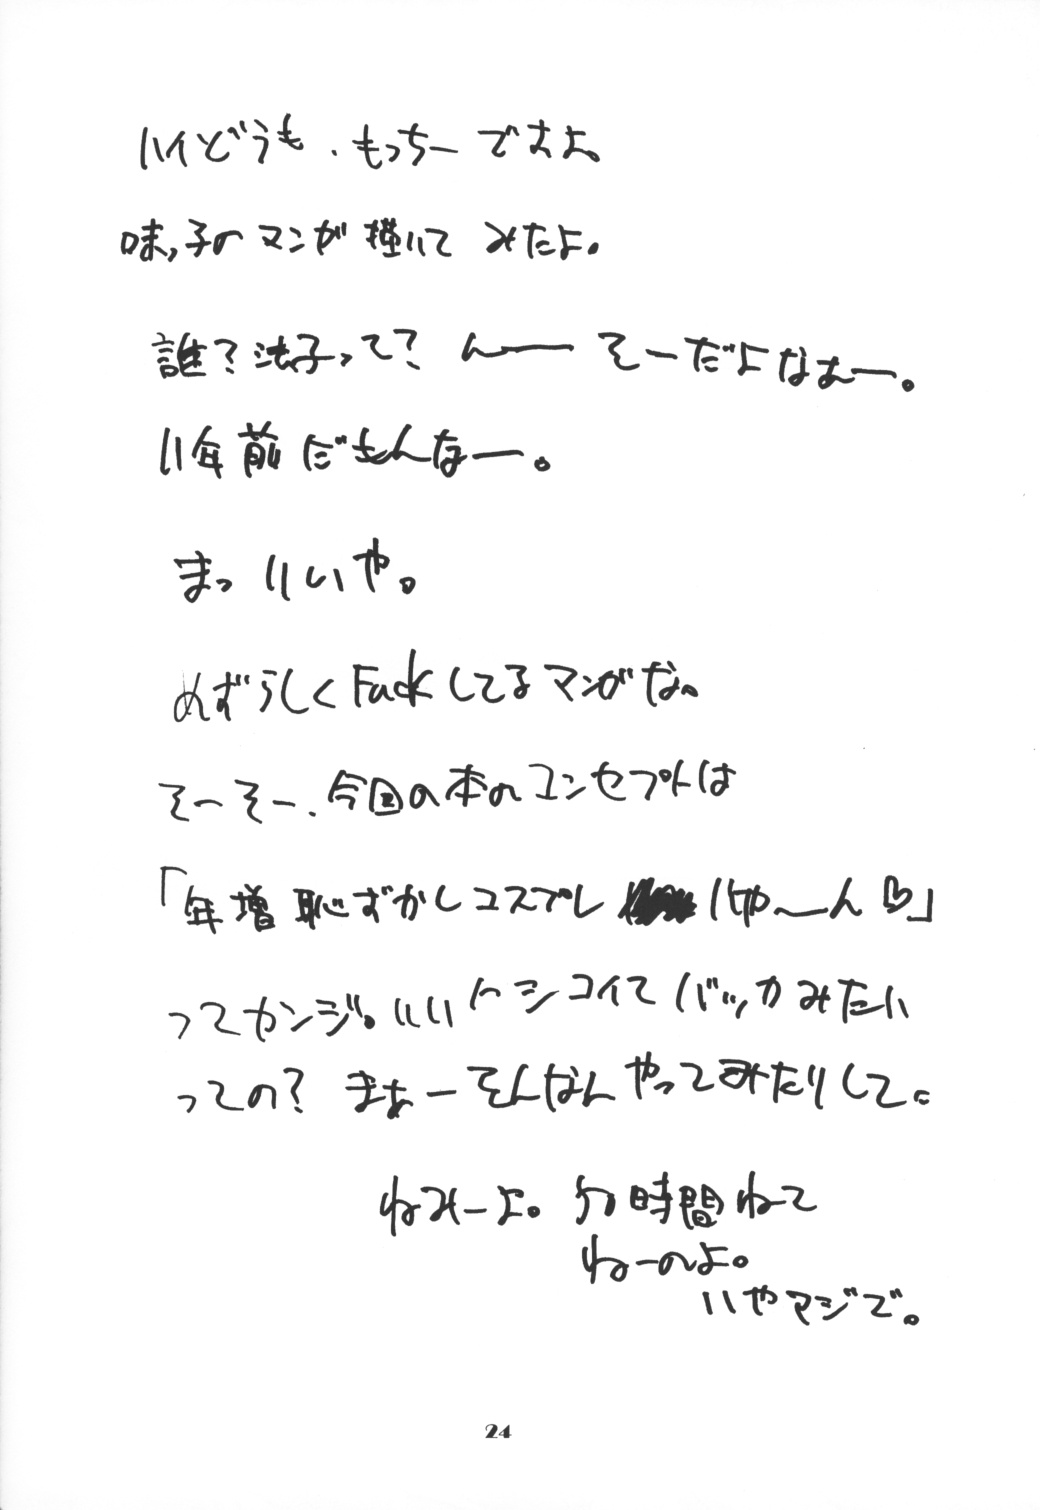 ハイどうも、もっちーですよ。
味っ子のマンガ描いてみたよ。
誰？法子って？んーーそーだよなぁー。
11年前だもんなー。
まっいいや。
めずらしくFuckしてるマンガな。
そーそー、今回の本のコンセプトは
「年増恥ずかしコスプレいやーん♡」
ってカンジ。いいトシコイてバッカみたい
っての？まぁーそんなんやってみたりして。
ねみーよ。50時間ねて
ねーのよ。
いやマジで。
24